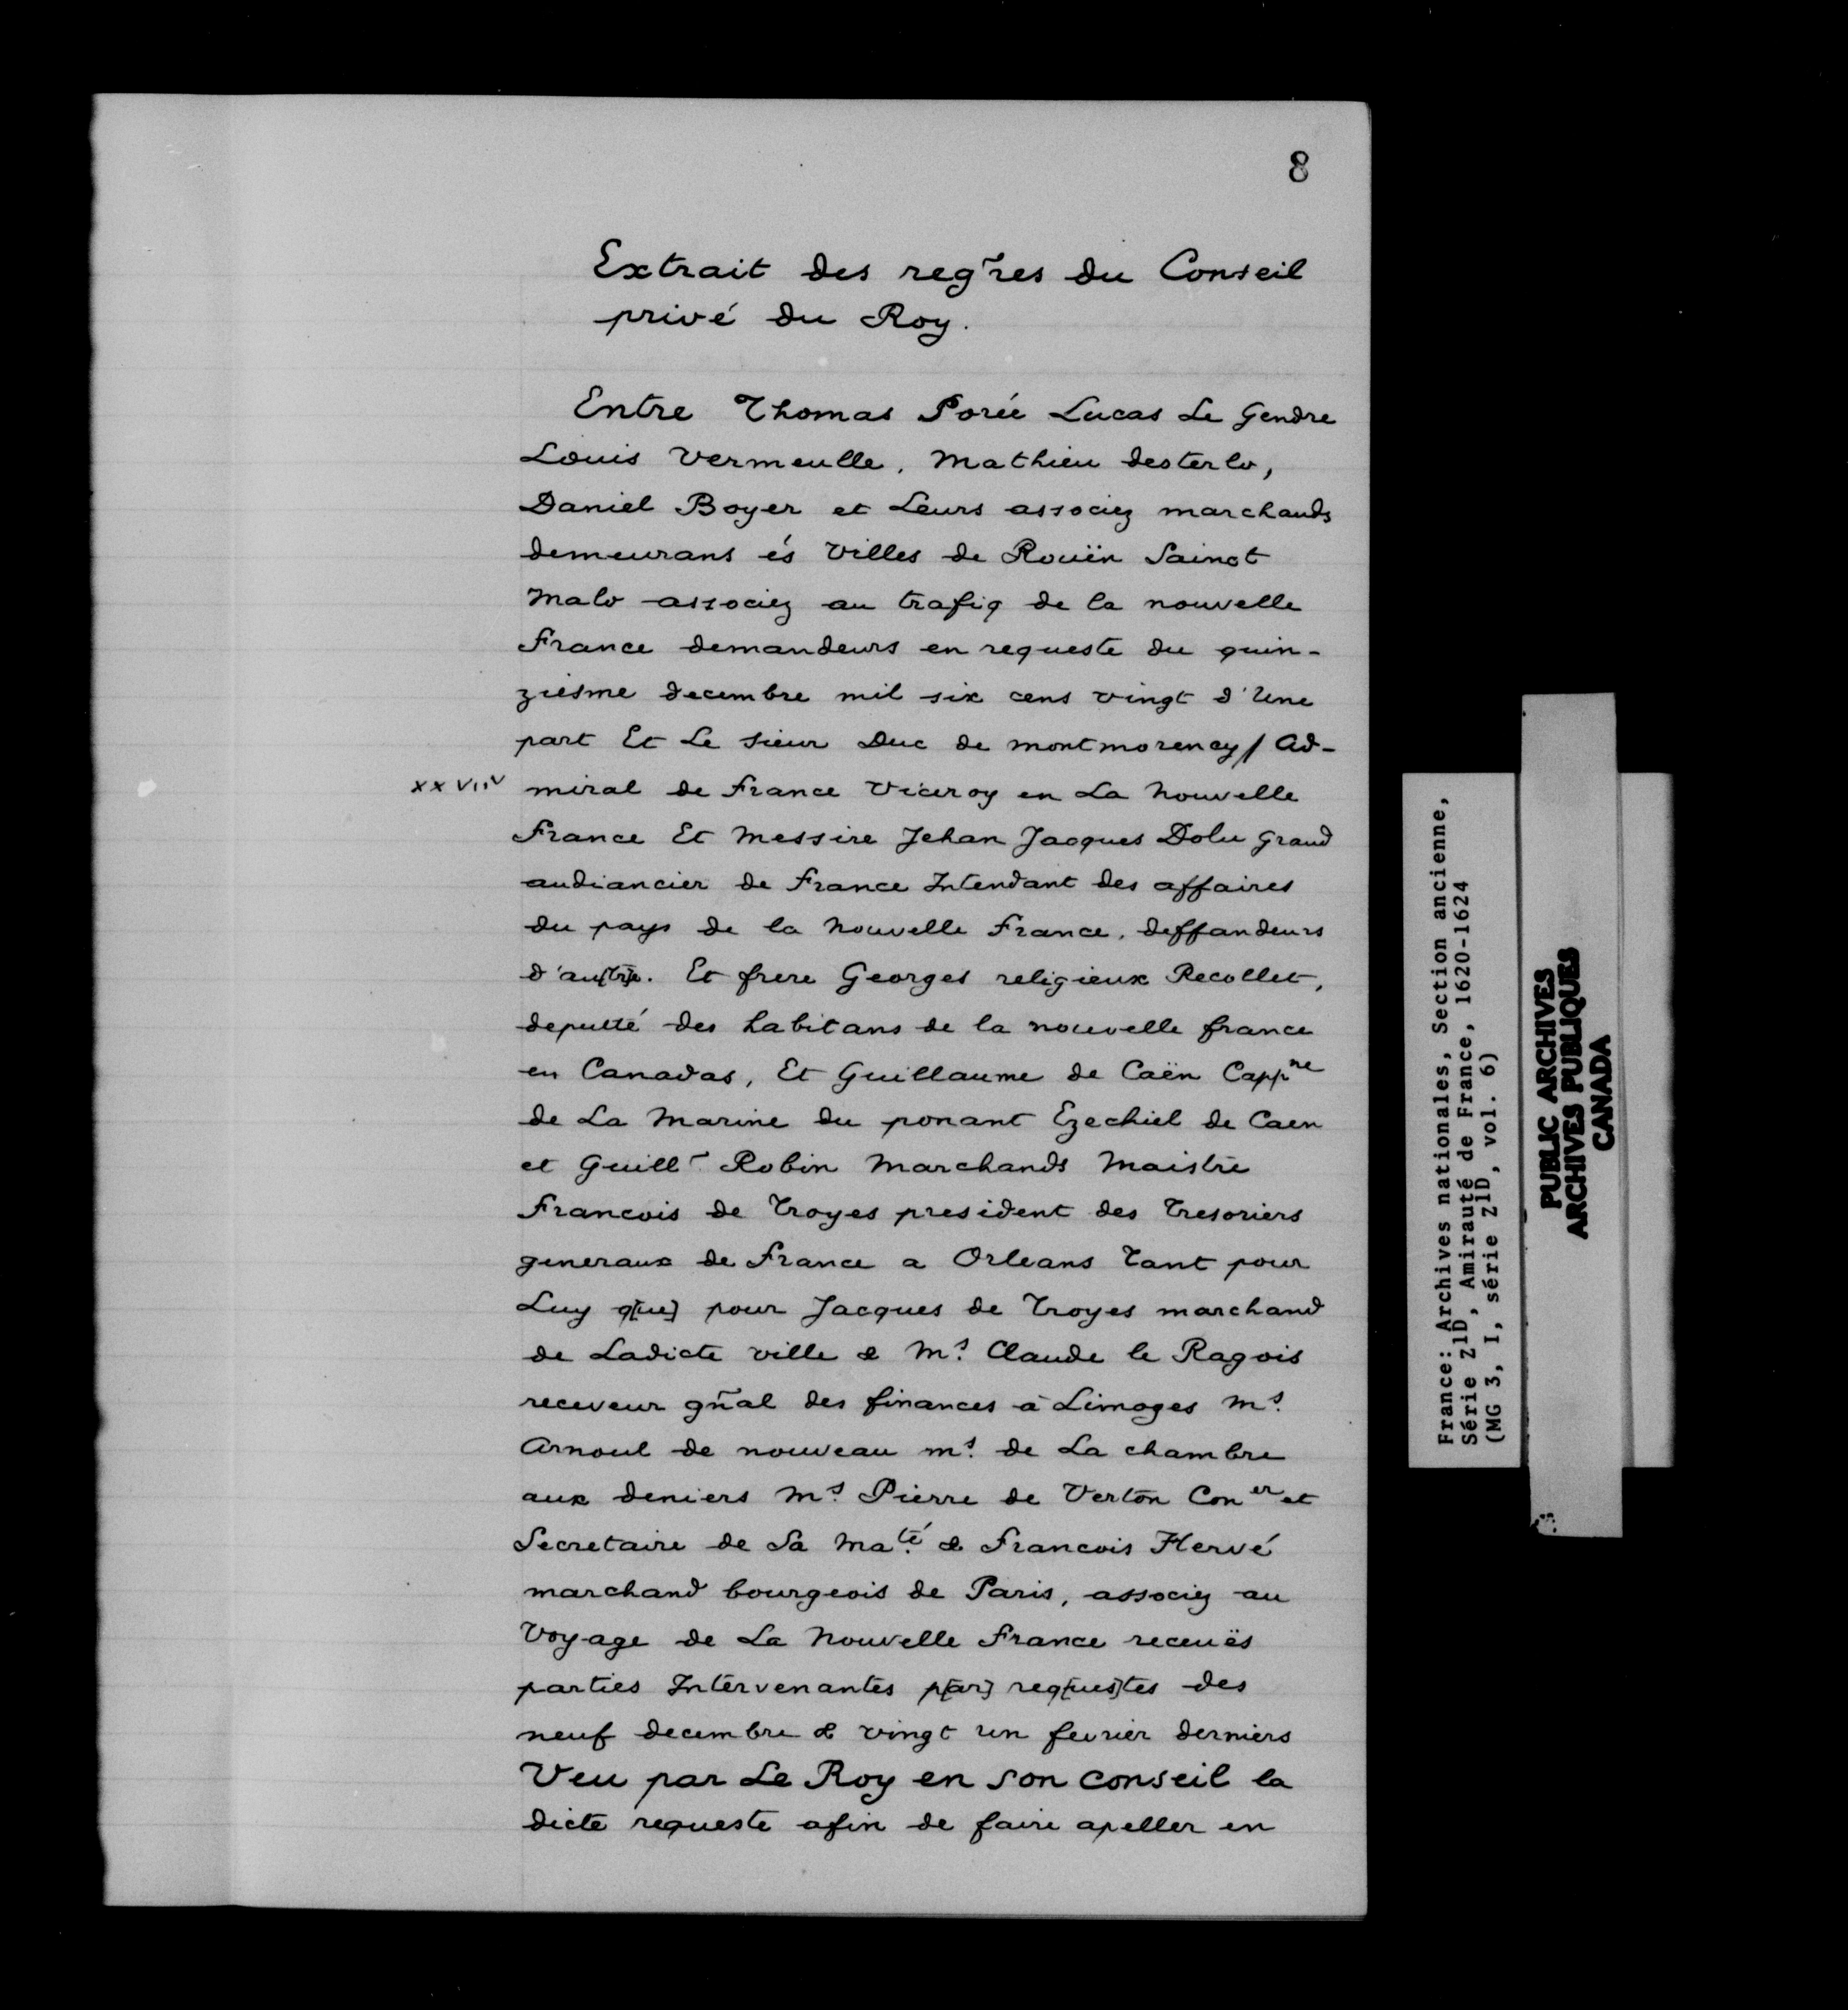 8
Extrait des reg~res du Conseil
privé du Roy.
Entre Thomas Porée Lucas Le Gendre
Louis Vermeulle, Mathieu desterlo,
Daniel Boyer et Leurs associez marchands
demeurans és Villes de Rouën Sainct
Malo associez au trafiq de la nouvelle
France demandeurs en requeste du quin-
ziésme decembre mil six cens vingt d'Une
part Et Le sieur Duc de montmorency / Ad-
xxviiv miral de France Viceroy en La Nouvelle
France Et Messire Jehan Jacques Dolu Grand
audiancier de France Intendant des affaires
du pays de la Nouvelle France, deffandeurs
d'au[tr]e. Et frere Georges religieux Recollet,
deputté des habitans de la nouvelle france
en Canadas, Et Guillaume de Caën Cappne
de La Marine du ponant Ezechiel de Caen
et Guill~ Robin Marchands Maistre
Francois de Troyes president des Tresoriers
generaux de France a Orleans Tant pour
Luy q[ue] pour Jacques de Troyes marchand
de Ladicte ville & Ms. Claude le Ragois
receveur gñal des finances à Limoges Ms.
Arnoul de nouveau ms. de La chambre
aux deniers Ms. Pierre de Verton Coner et
Secretaire de Sa Maté. & Francois Hervé
marchand bourgeois de Paris, associez au
Voyage de La Nouvelle France receuës
parties Intervenantes p[ar] req[ues]tes des
neuf decembre & vingt un fevrier derniers
Veu par Le Roy en son conseil la
dicte requeste afin de faire apeller en
France: Archives nationales, Section ancienne,
Série Z1D, Amirauté de France, 1620-1624
(MG 3, I, série Z1D, vol. 6)
PUBLIC ARCHIVES
ARCHIVES PUBLIQUES
CANADA